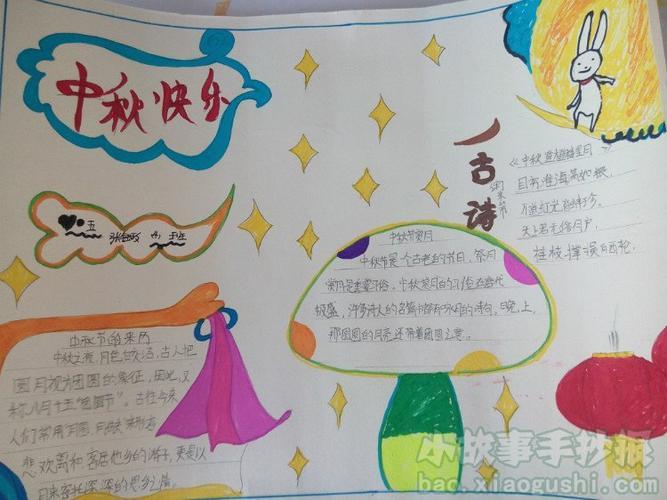 中秋快乐
五 班
古诗
《中秋登楼望月》
目穷淮海
天上若无修月户
桂枝撑损向西轮
中秋节赏月
中秋节是一个古老的节日，祭月
赏月是重要习俗，中秋赏月的习俗在唐代
极盛，许多诗人的名篇中都有咏月的诗句。晚上，
那圆圆的月亮还带着团圆之意。
中秋节的来历
中秋之夜，月色皎洁，古人把
圆月视为团圆的象征，因此，又
称八月十五“团圆节”。古往今来
人们常用“月圆、月缺”来形容
悲欢离和客居他乡的游子，更是以
月来寄托深深的思乡之情
小故事手抄报
bao.xiaogushi.com